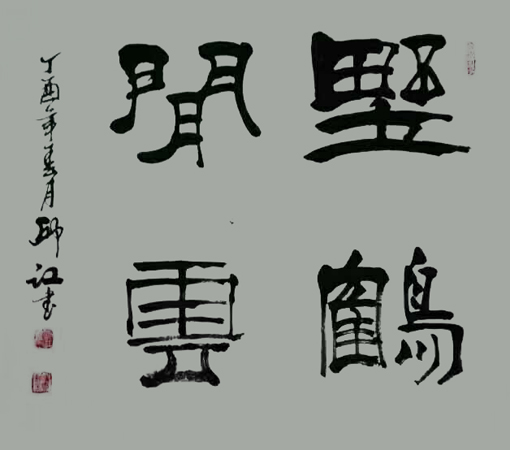 墅鶴
閒雲
丁酉年春月邱江书